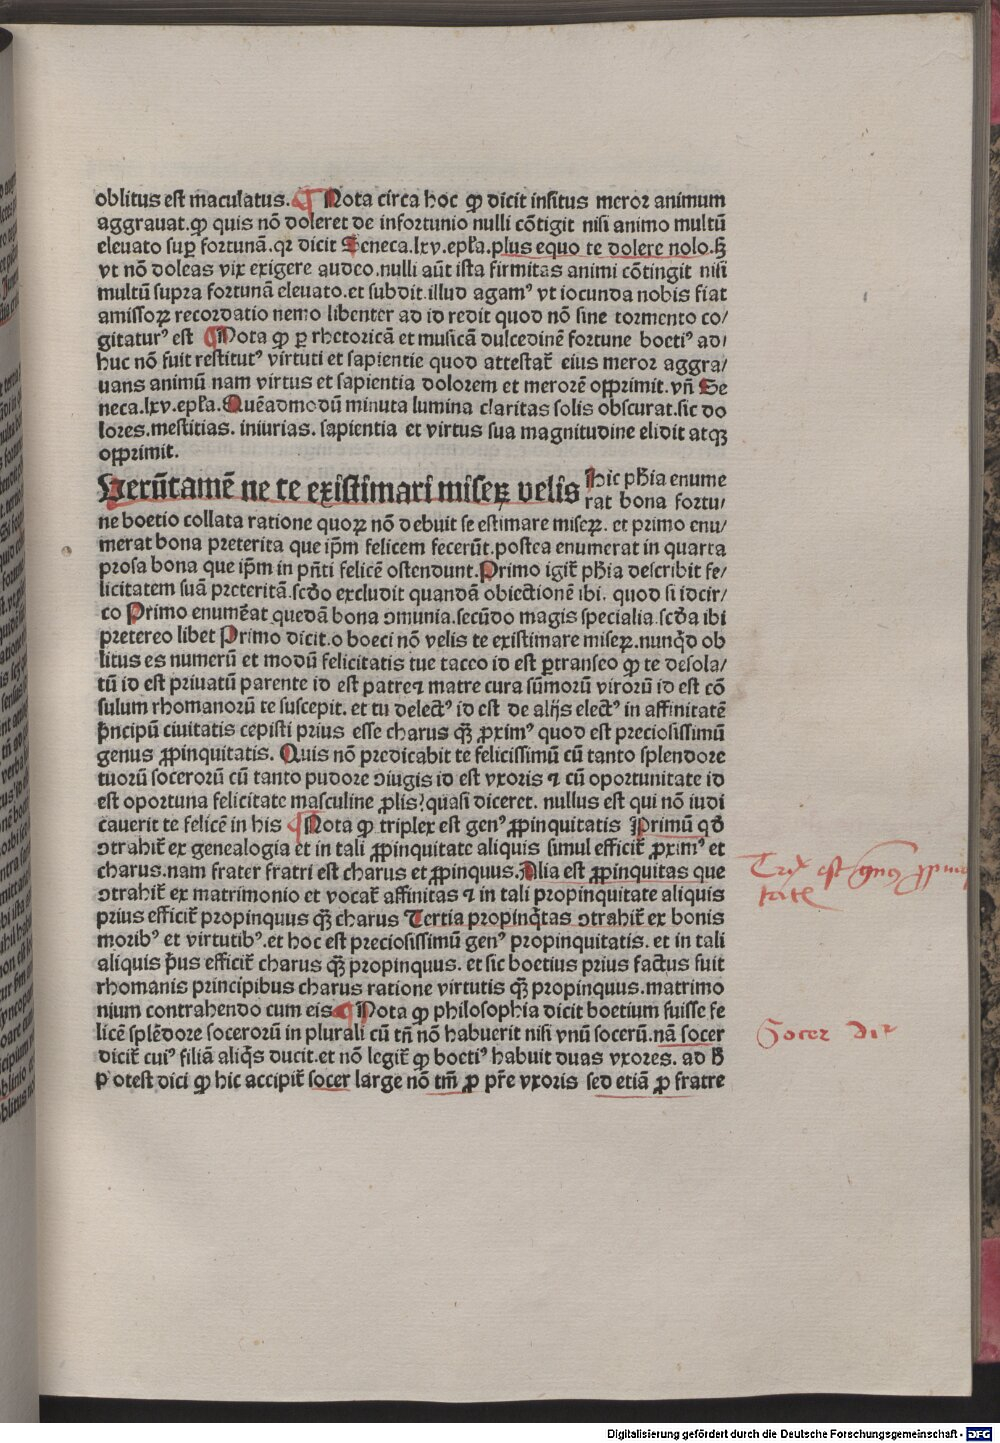 oblitus est maculatus. ¶ Nota circa hoc ꝙ dicit insitus meror animum
aggrauat. ꝙ quis nō doleret de infortunio nulli cōtigit nisi animo multū
eleuato suꝑ fortunā. qꝛ dicit Seneca. lxv. epl'a. plus equo te dolere nolo. ꝫ
vt nō doleas vix exigere audeo. nulli aūt ista firmitas animi cōtingit nisi
multū supra fortunā eleuato. et subdit. illud agamꝰ vt iocunda nobis fiat
amissoꝝ recordatio nemo libenter ad id redit quod nō sine tormento co/
gitaturꝰ est ¶ Nota ꝙ ꝑ rhetoricā et musicā dulcedinē fortune boetiꝰ ad/
huc nō fuit restitutꝰ virtuti et sapientie quod attestat᷑ eius meror aggra/
uans animū nam virtus et sapientia dolorem et merorē opprimit. vn̄ Se
neca. lxv. epl'a. Quēadmodū minuta lumina claritas solis obscurat. sic do
lores. mestitias. iniurias. sapientia et virtus sua magnitudine elidit atqꝫ
opprimit.
Verūtamē ne te existimari miseꝝ velis
Hic ph̄ia enume
rat bona fortu/
ne boetio collata ratione quoꝝ nō debuit se estimare miseꝝ. et primo enu/
merat bona preterita que ip̄m felicem fecerūt. postea enumerat in quarta
prosa bona que ip̄m in pn̄ti felicē ostendunt. Primo igit᷑ ph̄ia describit fe/
licitatem suā preteritā. scd̄o excludit quandā obiectionē ibi. quod si idcir/
co Primo enumēat quedā bona ↄmunia. secūdo magis specialia. scd̄a ibi
pretereo libet Primo dicit. o boeci nō velis te existimare miseꝝ. nunqͥd ob
litus es numerū et modū felicitatis tue taceo id est ꝑtranseo ꝙ te desola/
tū id est priuatū parente id est patre ⁊ matre cura sūmorū virorū id est cō
sulum rhomanorū te suscepit. et tu delectꝰ id est de alijs electꝰ in affinitatē
pͥncipū ciuitatis cepisti prius esse charus qꝫ̄ ꝓximꝰ quod est preciosissimū
genus ꝓpinquitatis. Quis nō predicabit te felicissimū cū tanto splendore
tuorū socerorū cū tanto pudore ↄiugis id est vxoris ⁊ cū oportunitate id
est oportuna felicitate masculine ꝓlis? quasi diceret. nullus est qui nō iudi
cauerit te felicē in his ¶ Nota ꝙ triplex est genꝰ ꝓpinquitatis Primū qd̄
ↄtrahit᷑ ex genealogia et in tali ꝓpinquitate aliquis simul efficit᷑ ꝓximꝰ et
charus. nam frater fratri est charus et ꝓpinquus. Alia est ꝓpinquitas que
ↄtrahit᷑ ex matrimonio et vocat᷑ affinitas ⁊ in tali propinquitate aliquis
prius efficit᷑ propinquus qꝫ̄ charus Tertia propinqͥtas ↄtrahit᷑ ex bonis
moribꝰ et virtutibꝰ. et hoc est preciosissimū genꝰ propinquitatis. et in tali
aliquis pͥus efficit᷑ charus qꝫ̄ propinquus. et sic boetius prius factus fuit
rhomanis principibus charus ratione virtutis qꝫ̄ propinquus. matrimo
nium contrahendo cum eis ¶ Nota ꝙ philosophia dicit boetium fuisse fe
licē splēdore socerorū in plurali cū tn̄ nō habuerit nisi vnū socerū. nā socer
dicit᷑ cuiꝰ filiā aliqͥs ducit. et nō legit᷑ ꝙ boetiꝰ habuit duas vxores. ad h̄
potest dici ꝙ hic accipit᷑ socer large nō tm̄ ꝓ pr̄e vxoris sed etiā ꝓ fratre
Trix est genꝰ ꝓpinq
tate
Socer dir
Digitalisierung gefördert durch die Deutsche Forschungsgemeinschaft - DFG